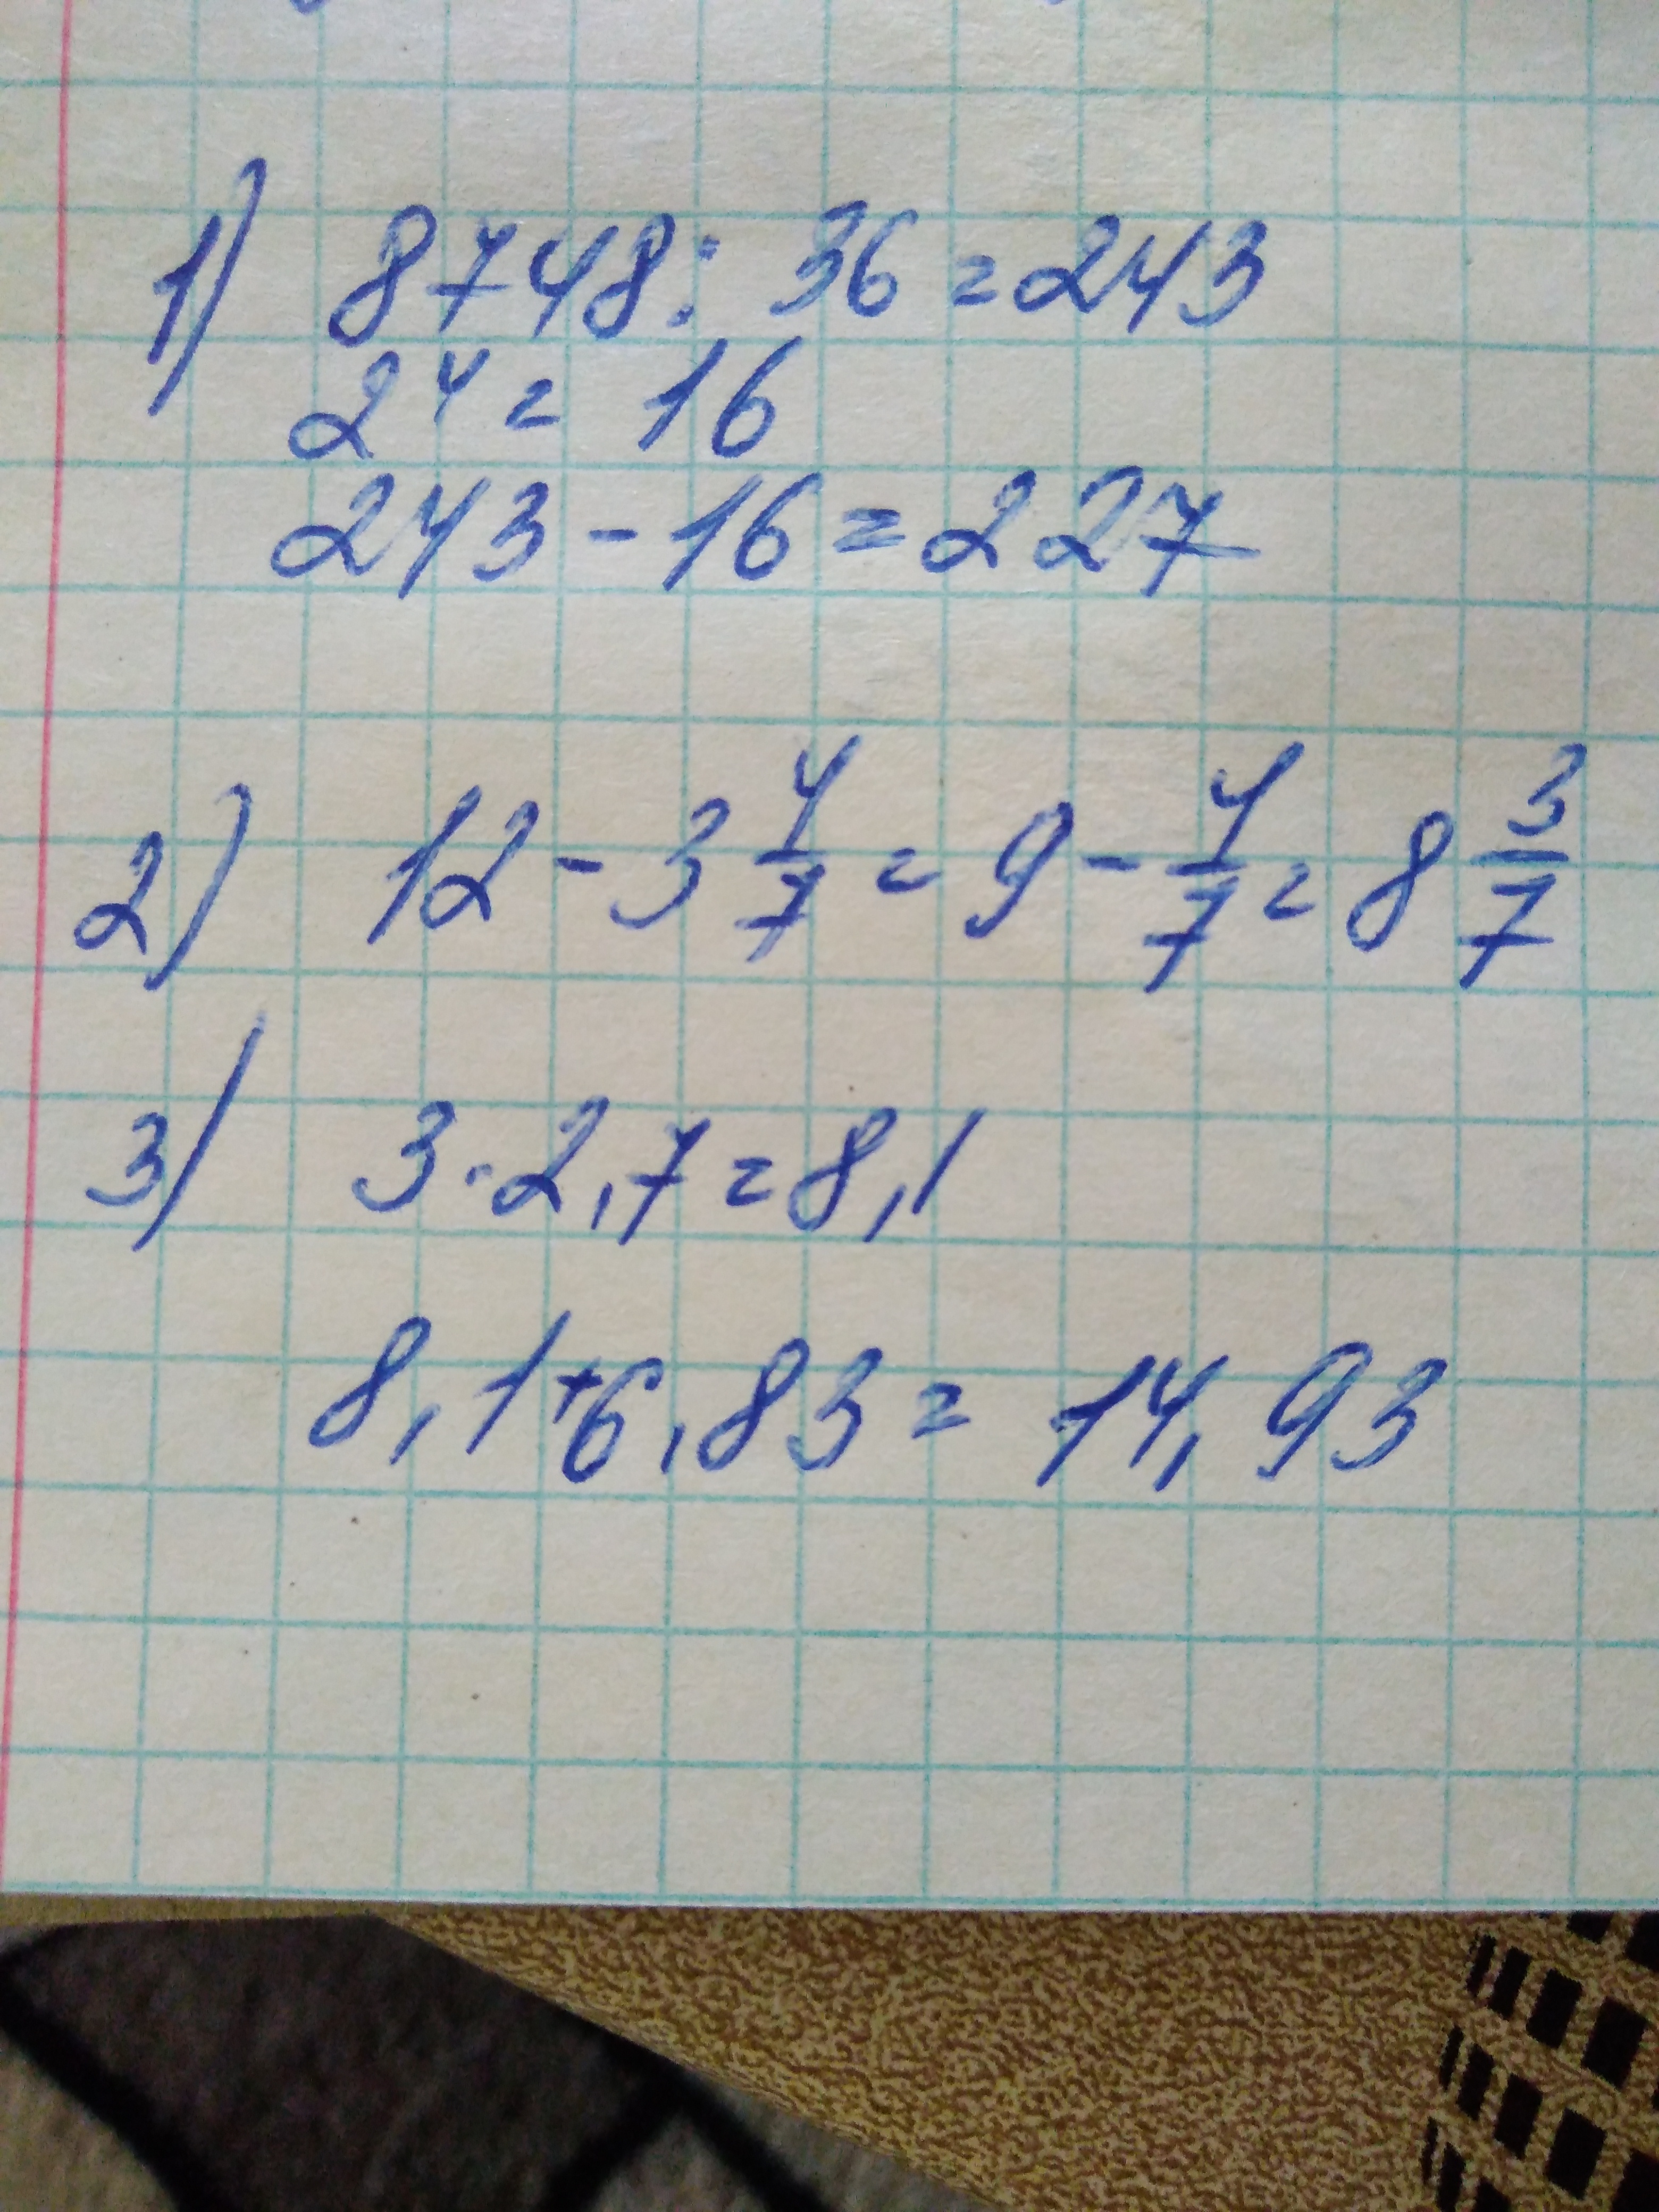 1) 8748 : 36 = 243
2⁴ = 16
243 - 16 = 227
2) 12 - 3 4/7 = 9 - 4/7 = 8 3/7
3) 3 · 2,7 = 8,1
8,1 + 6,83 = 14,93